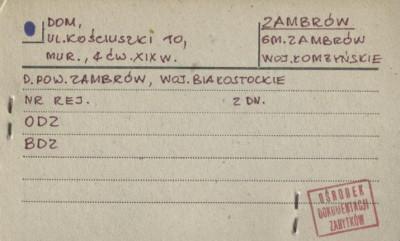 DOM,
UL. KOŚCIUSZKI 10,
MUR., 4 ĆW. XIX W.
ZAMBRÓW
GM. ZAMBRÓW
WOJ. ŁOMŻYŃSKIE
D. POW. ZAMBRÓW, WOJ. BIAŁOSTOCKIE
NR REJ. Z DN.
ODZ
BDZ
OŚRODEK
DOKUMENTACJI
ZABYTKÓW